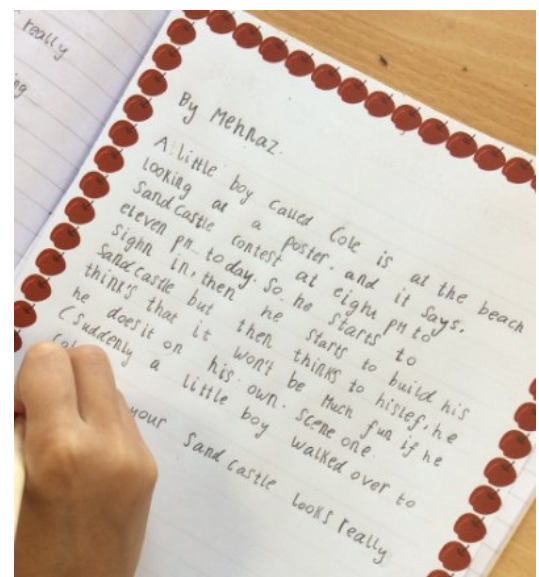 really
ng
By Mehnaz.
A little boy called Cole is at the beach
looking at a poster. and it says,
Sandcastle contest at eight pm to
eleven pm today. So he starts to
sighn in, then he starts to build his
Sandcastle but then thinks to hislef, he
thinks that it won't be much fun if he
he doesit on his own. scene one.
(Suddenly a little boy walked over to
Col
your sandcastle looks really